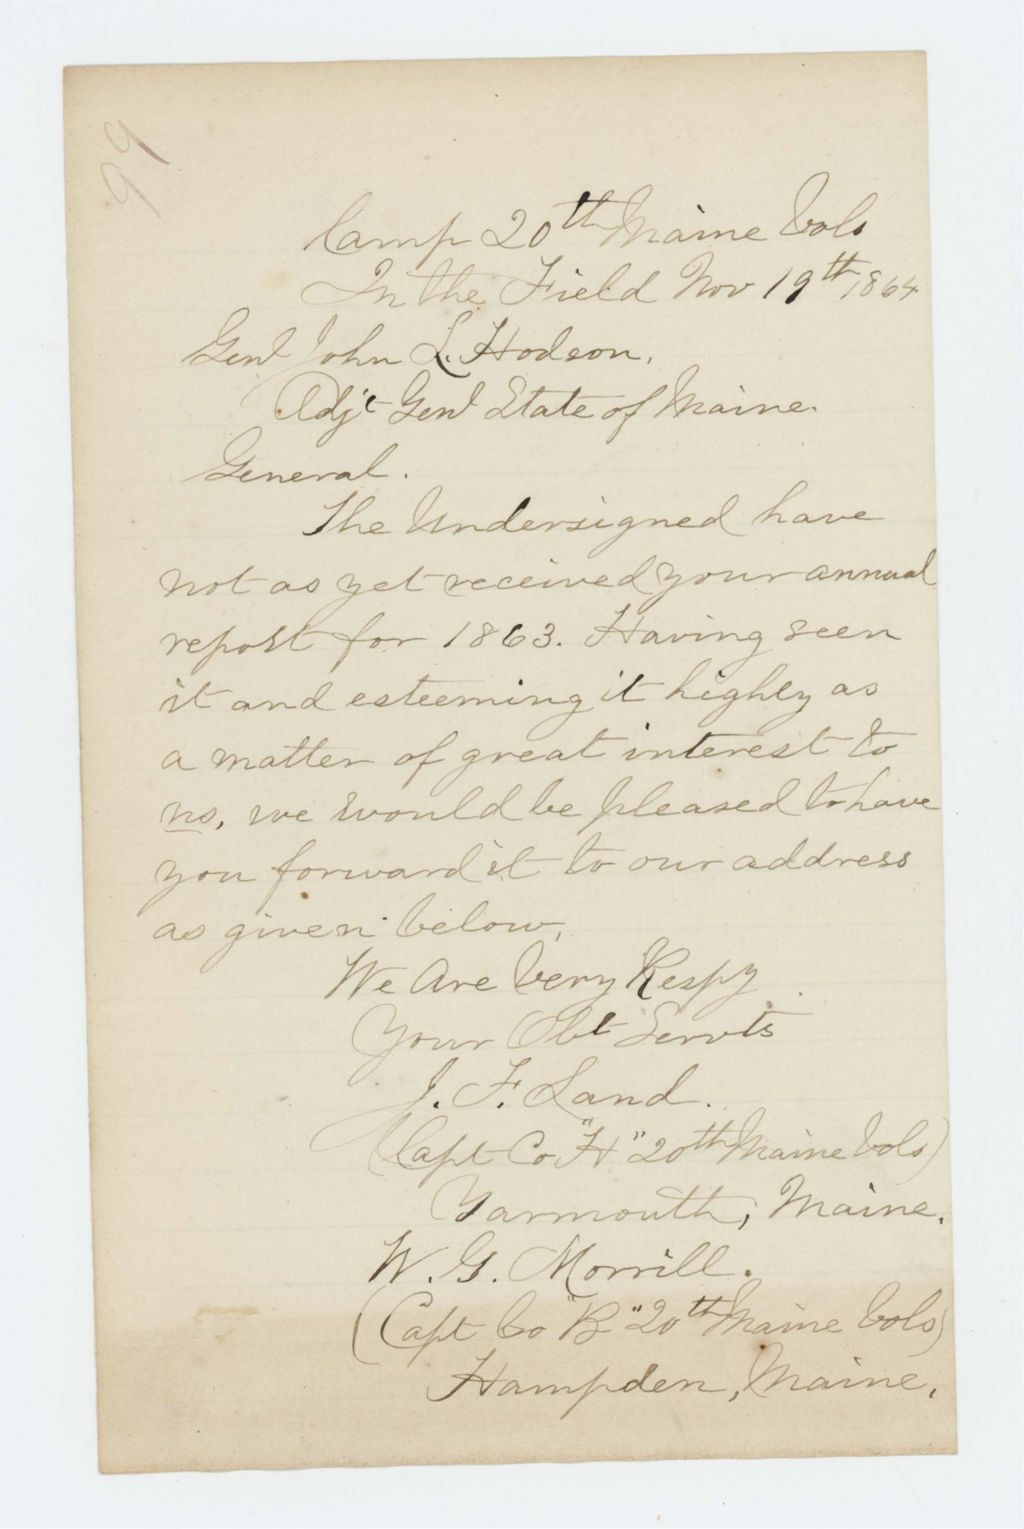 99
Camp 20th Maine Vols
In the Field Nov 19th, 1864
Genl John L. Hodson,
Adjt Genl State of Maine.
General.
The Undersigned have
not as yet received your annual
report for 1863. Having seen
it and esteeming it highly as
a matter of great interest to
us, we would be pleased to have
you forward it to our address
as given below,
We Are Very Respy
Your Obt Servts
J. F. Land.
(Capt Co "H" 20th Maine Vols)
Yarmouth, Maine.
W. G. Morrill.
(Capt Co "B" 20th Maine Vols)
Hampden, Maine.